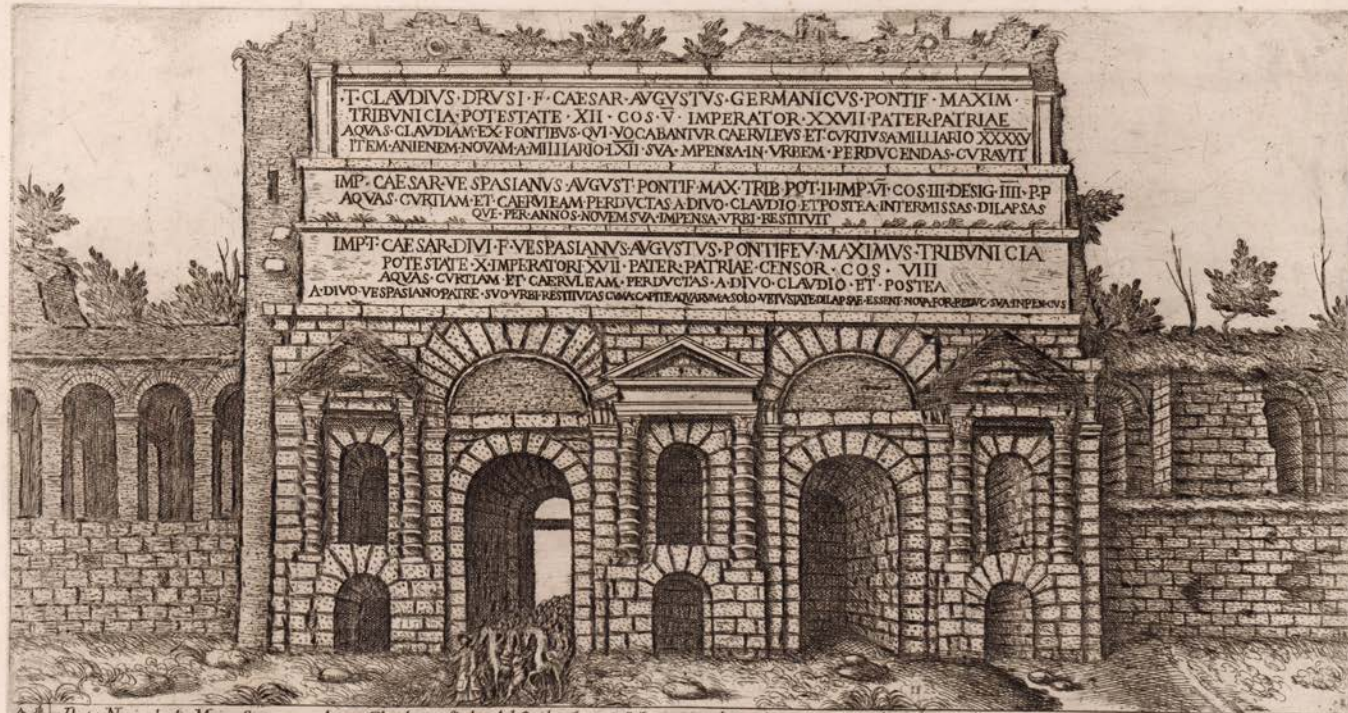 ·T·CLAVDIVS·DRVSI·F·CAESAR·AVGVSTVS·GERMANICVS·PONTIF·MAXIM·
TRIBVNICIA·POTESTATE·XII·COS·V·IMPERATOR·XXVII·PATER·PATRIAE
AQVAS·CLAVDIAM·EX·FONTIBVS·QVI·VOCABANTVR·CAERVLEVS·ET·CVRTIVS·A·MILLIARIO XXXXV
ITEM·ANIENEM·NOVAM·A·MILIARIO·LXII·SVA·MPENSA·IN·VRBEM·PERDVCENDAS·CVRAVIT
IMP·CAESAR·VESPASIANVS·AVGVST·PONTIF·MAX·TRIB·POT·II·IMP·VI·COS·III·DESIG·IIII·P·P
AQVAS·CVRTIAM·ET·CAERVLEAM·PERDVCTAS·A·DIVO·CLAVDIO·ET·POSTEA·INTERMISSAS·DILAPSAS
QVE·PER·ANNOS·NOVEM·SVA·IMPENSA·VRBI·RESTITVIT
IMP·T·CAESAR·DIVI·F·VESPASIANVS·AVGVSTVS·PONTIFEV·MAXIMVS·TRIBVNICIA
POTESTATE·X·IMPERATORI·XVII·PATER·PATRIAE·CENSOR·COS·VIII
AQVAS·CVRTIAM·ET·CAERVLEAM·PERDVCTAS·A·DIVO·CLAVDIO·ET·POSTEA
A·DIVO·VESPASIANO·PATRE·SVO·VRBI·RESTITVTAS·CVM·A·CAPITE·AQVARVM·A·SOLO·VETVSTATE·DILAPSAE·ESSENT·NOVA·FOR·REDVC·SVA·INPEN·CVS